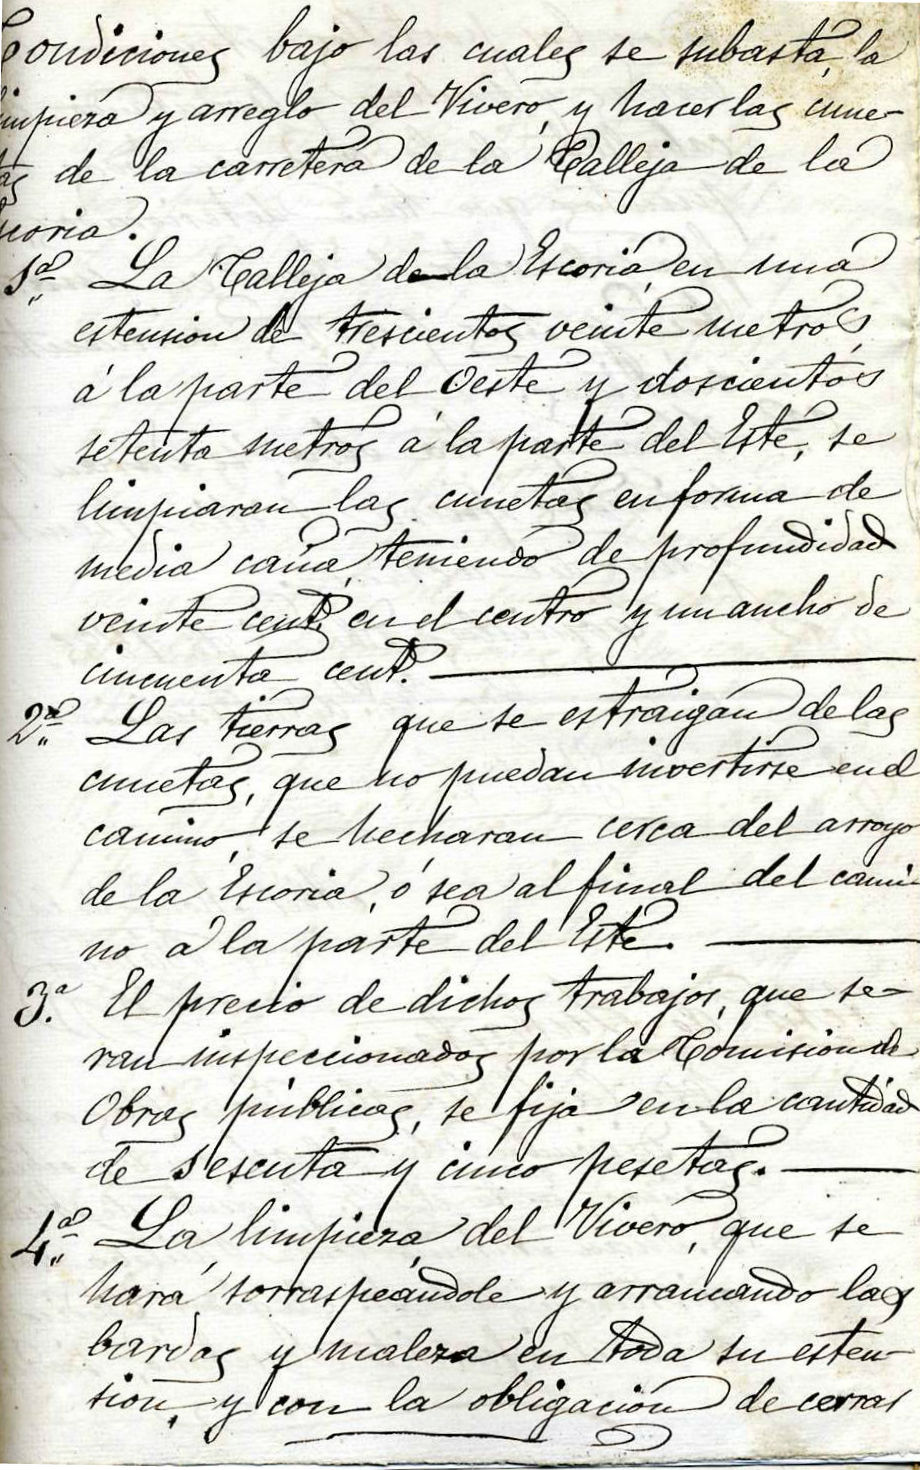 Condiciones bajo las cuales se subasta, la
limpieza y arreglo del Vivero, y hacer las cune-
tas de la carretera de la Calleja de la
Escoria.
1ª La Calleja de la Escoria, en una
estension de trescientos veinte metros,
á la parte del Oeste y doscientos
setenta metros á la parte del Este, se
limpiaran las cunetas en forma de
media caña, teniendo de profundidad
veinte cents. en el centro y un ancho de
cincuenta cent.
2ª Las tierras que se estraigan de las
cunetas, que no puedan invertirse en el
camino, se hecharan cerca del arroyo
de la Escoria, ó sea al final del cami-
no á la parte del Este.
3ª El precio de dichos trabajos, que se-
ran inspeccionados por la Comision de
Obras públicas, se fija en la cantidad
de sesenta y cinco pesetas.
4ª La limpieza del Vivero, que se
hará sorraspeándole y arrancando las
bardas y maleza en toda su esten-
sion, y con la obligación de cerrar